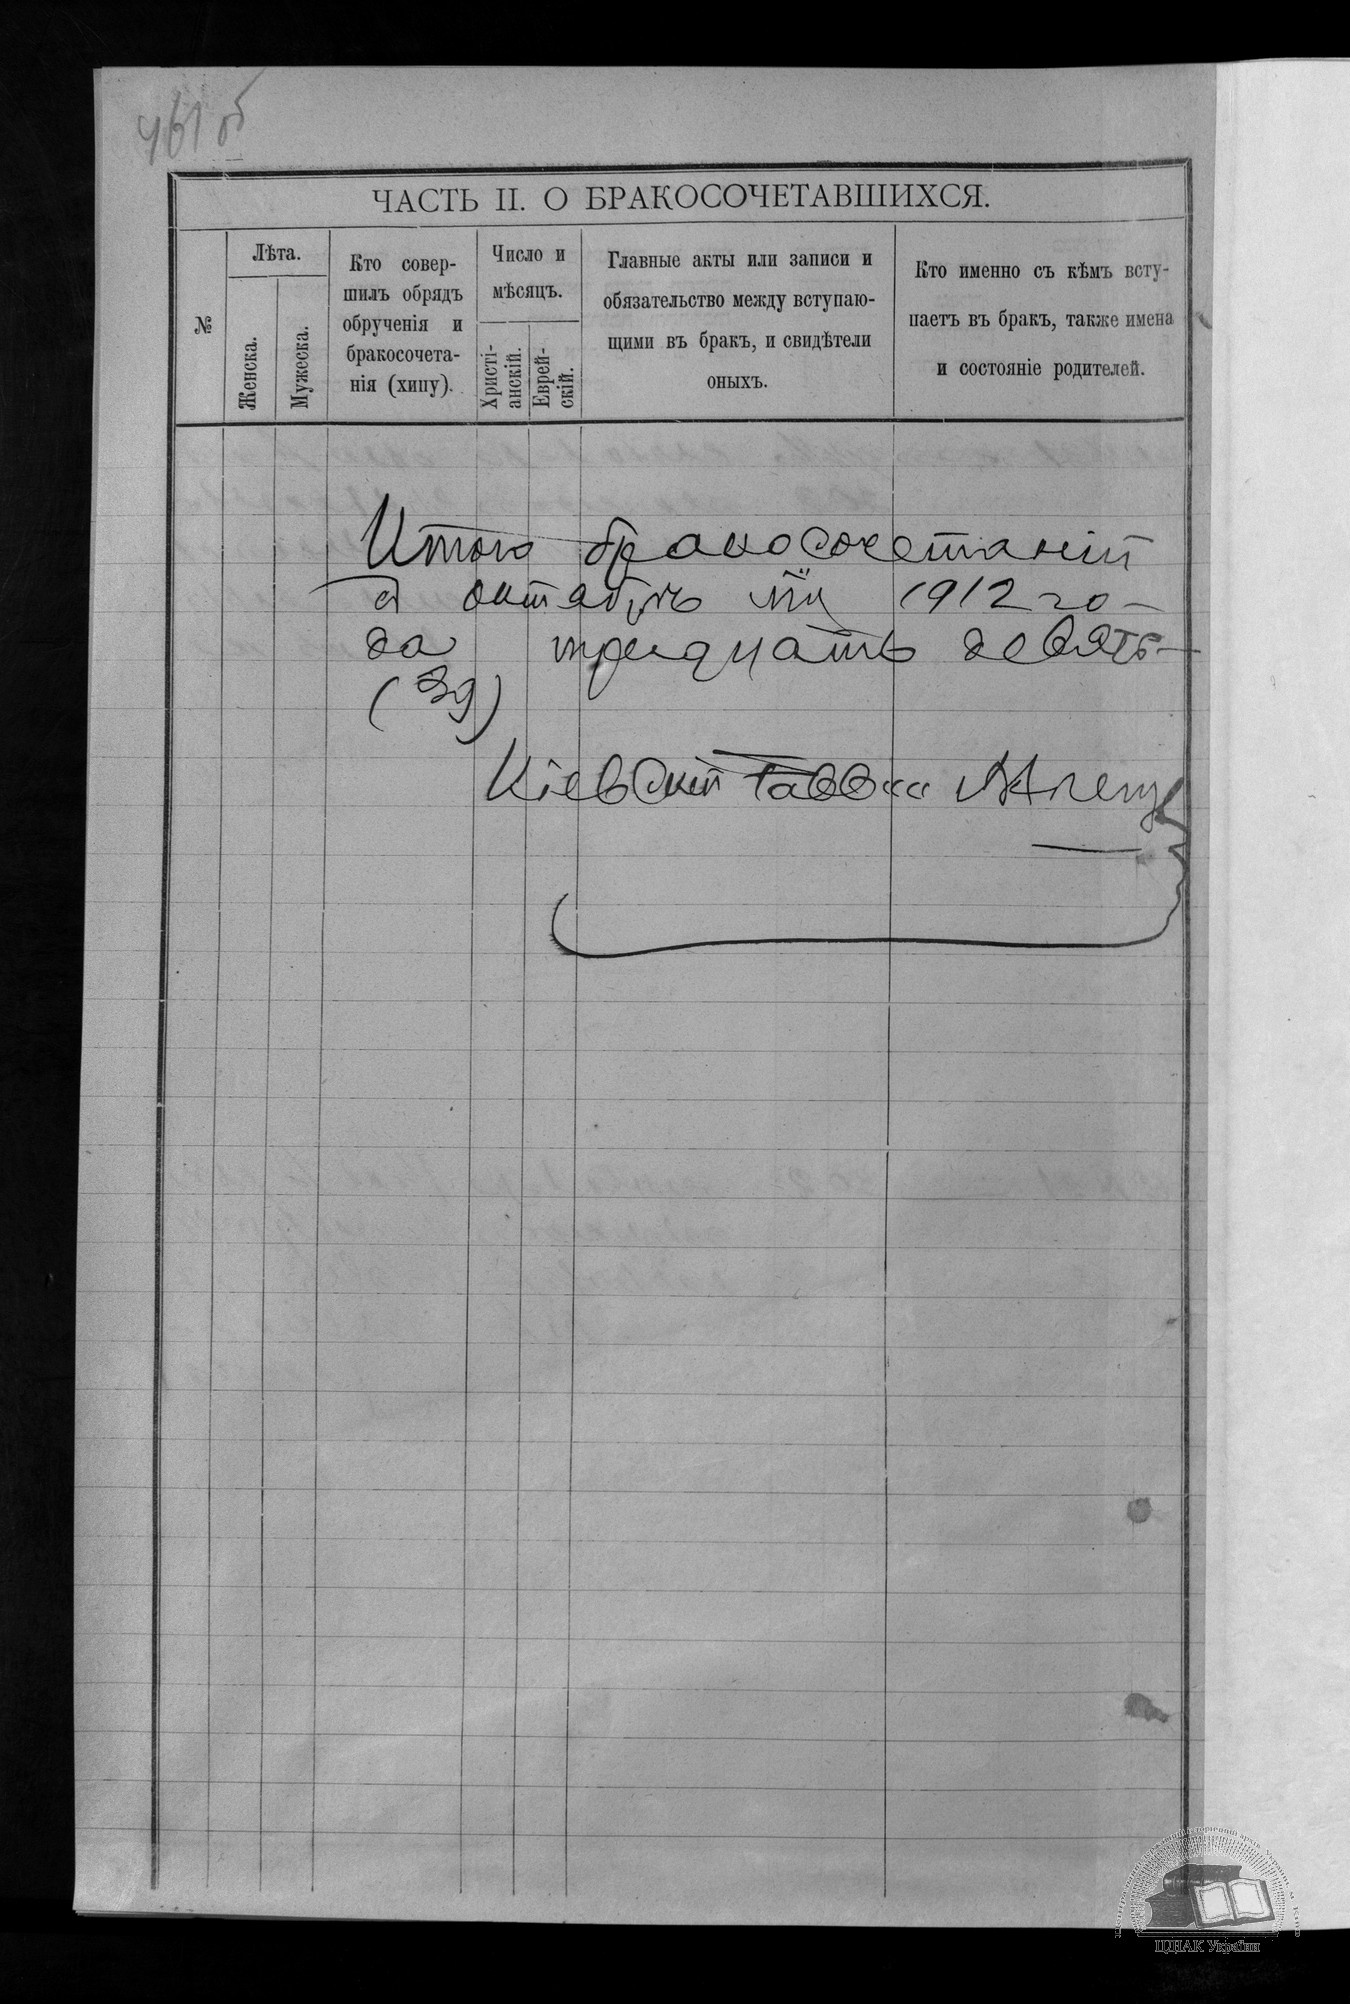 461 об
ЧАСТЬ II. О БРАКОСОЧЕТАВШИХСЯ.
№
Лѣта.
Женска.
Мужеска.
Кто совер-
шилъ обрядъ
обрученія и
бракосочета-
нія (хипу).
Число и
мѣсяцъ.
Христі-
анскій.
Еврей-
скій.
Главные акты или записи и
обязательство между вступаю-
щими въ бракъ, и свидѣтели
оныхъ.
Кто именно съ кѣмъ всту-
паетъ въ бракъ, также имена
и состояніе родителей.
Итого бракосочетаній
въ октябрѣ мц 1912 го-
да тридцать девять
(39)
Кіевскій Раввин
ЦДІАК України